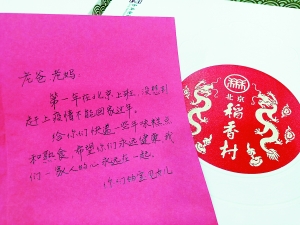 老爸老妈：
第一年在北京上班，没想到
赶上疫情不能回家过年。
给你们快递一些年味糕点
和熟食，希望你们永远健康，我
们一家人的心永远在一起。
你们的宝贝女儿
北京
稻香村